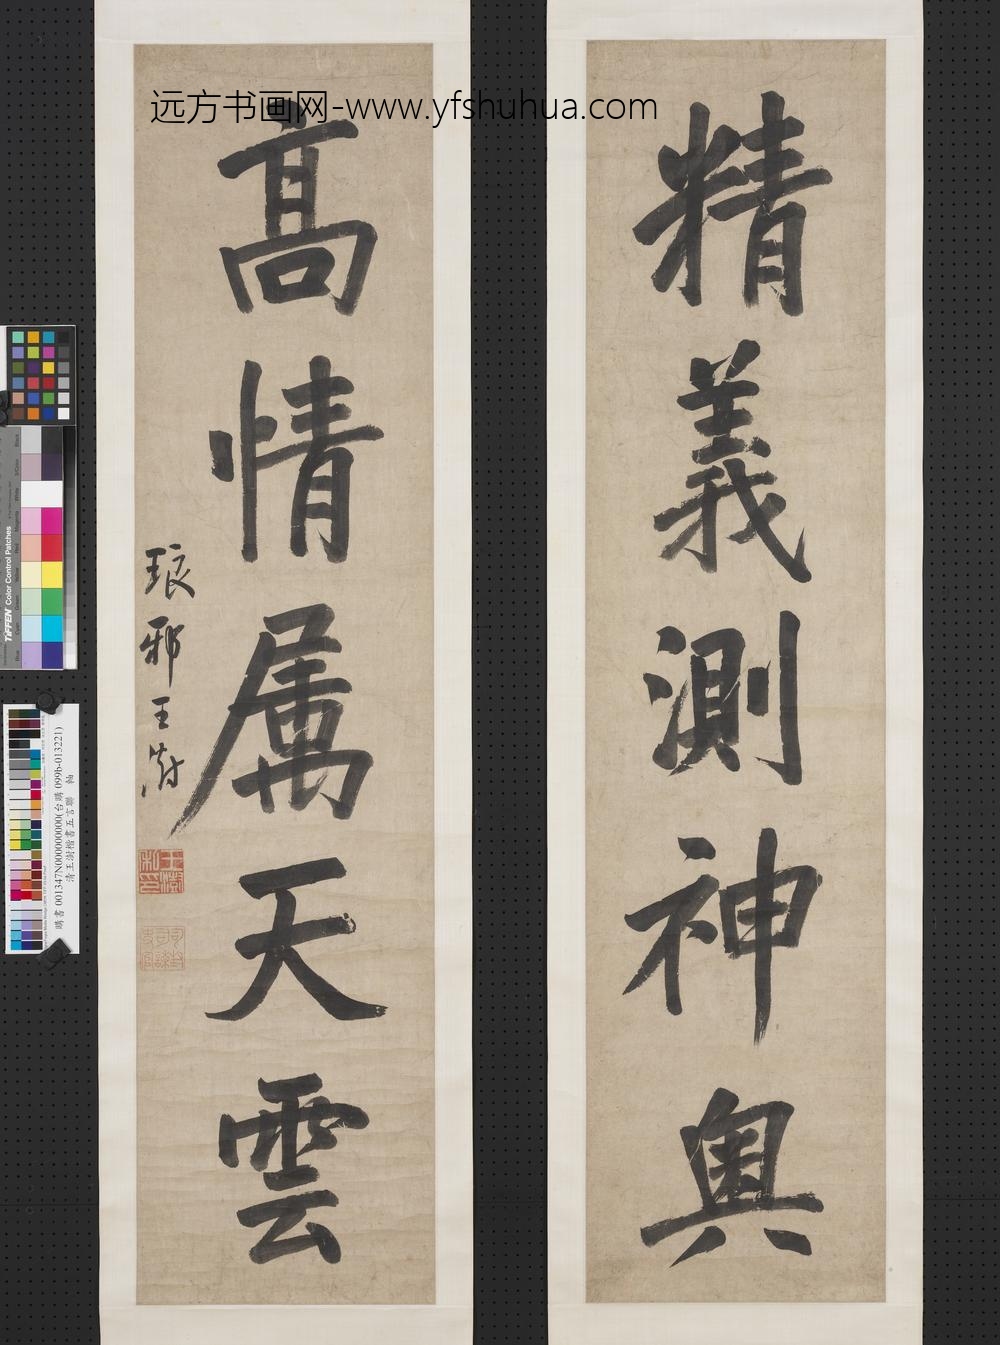 远方书画网-www.yfshuhua.com
精義測神奥
高情属天雲
琅邪王澍
王澍私印
TIFFEN Color Control Patches
購書 001347N000000000(台購 099b-013221)
清王澍楷書五言聯 軸